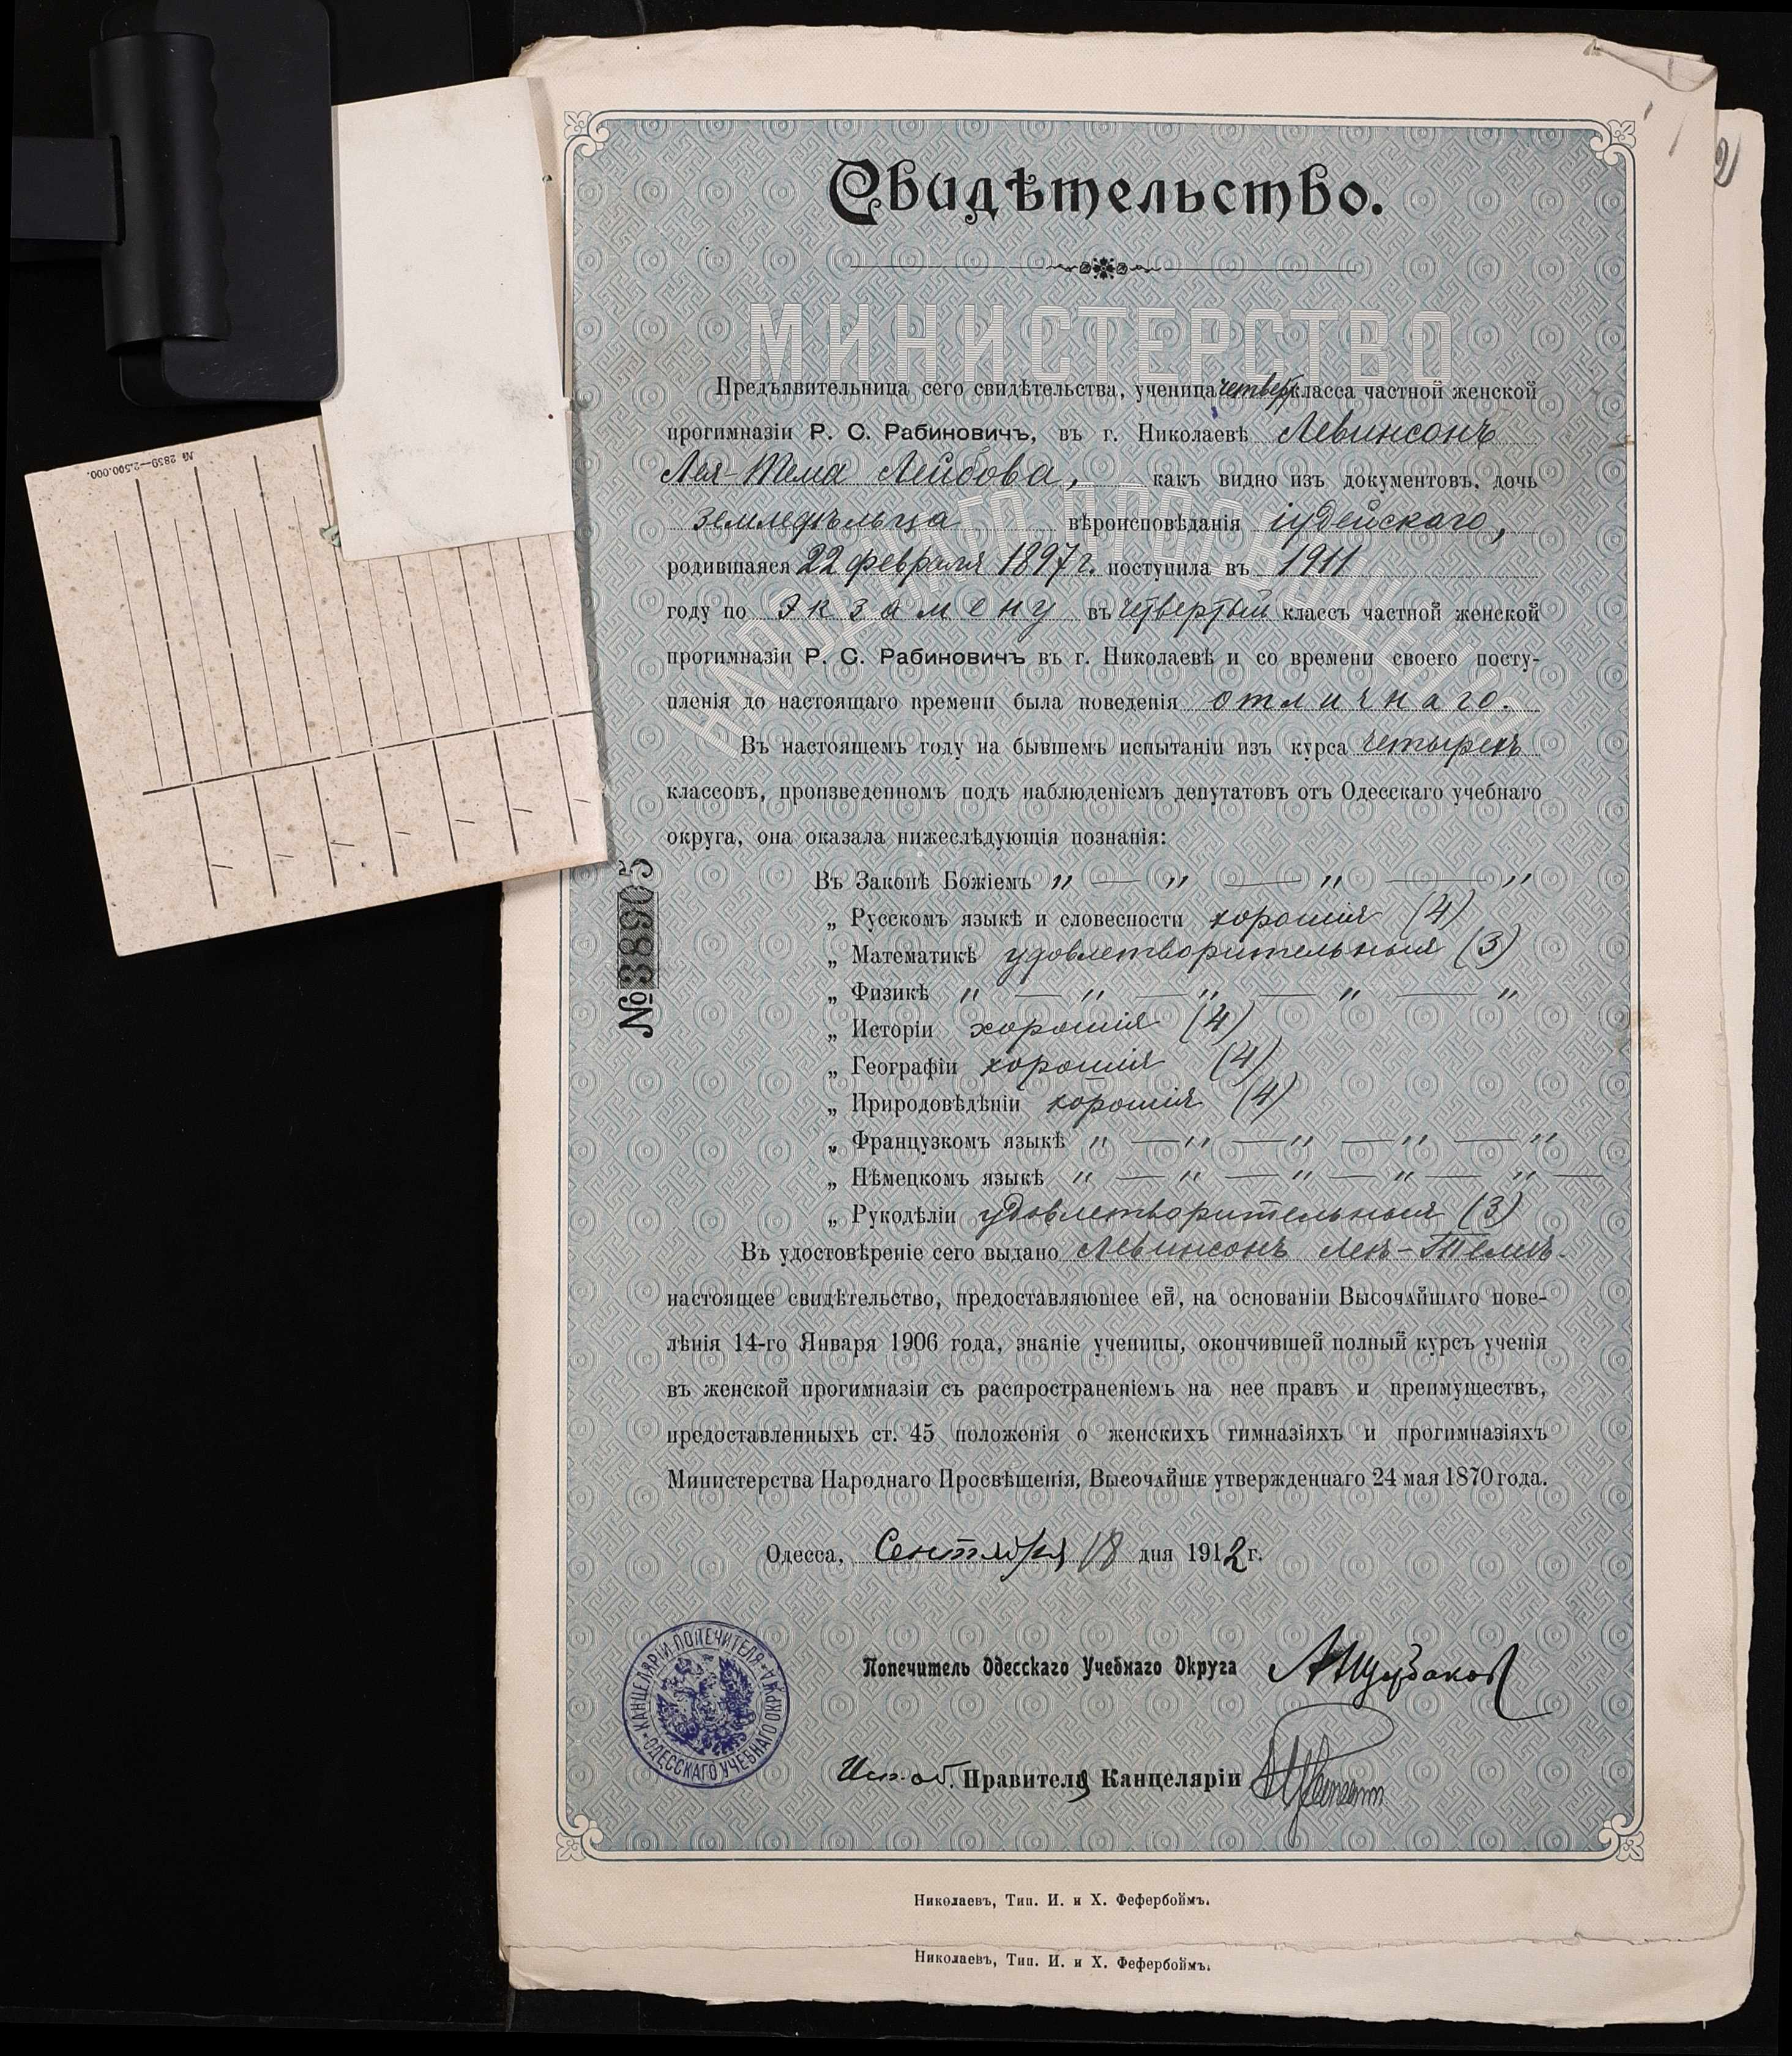 2
Свидѣтельство.
МИНИСТЕРСТВО
НАРОДНАГО ПРОСВѢЩЕНІЯ
Предъявительница сего свидѣтельства, ученица четверт. класса частной женской
прогимназіи Р. С. Рабиновичъ, въ г. Николаевѣ Левинсонъ
Лея-Тема Лейбова, какъ видно изъ документовъ, дочь
земледѣльца вѣроисповѣданія іудейскаго,
родившаяся 22 февраля 1897 г. поступила въ 1911
году по экзамену въ четвертый классъ частной женской
прогимназіи Р. С. Рабиновичъ въ г. Николаевѣ и со времени своего посту-
пленія до настоящаго времени была поведенія отличнаго.
Въ настоящемъ году на бывшемъ испытаніи изъ курса четырехъ
классовъ, произведенномъ подъ наблюденіемъ депутатовъ отъ Одесскаго учебнаго
округа, она оказала нижеслѣдующія познанія:
Въ Законѣ Божіемъ " — " — " — "
„ Русскомъ языкѣ и словесности хорошія (4)
„ Математикѣ удовлетворительныя (3)
„ Физикѣ " — " — " — " — "
„ Исторіи хорошія (4)
„ Географіи хорошія (4)
„ Природовѣдѣніи хорошія (4)
„ Французкомъ языкѣ " — " — " — " — "
„ Нѣмецкомъ языкѣ " — " — " — " — " —
„ Рукодѣліи удовлетворительныя (3)
Въ удостовѣреніе сего выдано Левинсонъ Леѣ-Темѣ
настоящее свидѣтельство, предоставляющее ей, на основаніи Высочайшаго пове-
лѣнія 14-го Января 1906 года, знаніе ученицы, окончившей полный курсъ ученія
въ женской прогимназіи съ распространеніемъ на нее правъ и преимуществъ,
предоставленныхъ ст. 45 положенія о женскихъ гимназіяхъ и прогимназіяхъ
Министерства Народнаго Просвѣщенія, Высочайше утвержденнаго 24 мая 1870 года.
Одесса, Сентября 18 дня 1912 г.
Попечитель Одесскаго Учебнаго Округа
Исп. об. Правителя Канцеляріи
КАНЦЕЛЯРІИ ПОПЕЧИТЕЛЯ ОДЕССКАГО УЧЕБНАГО ОКРУГА
№ 38905
№ 2839—2.500.000.
Николаевъ, Тип. И. и Х. Фефербоймъ.
Николаевъ, Тип. И. и Х. Фефербоймъ.